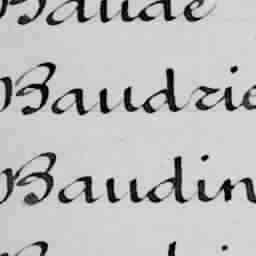 Baude
Baudrie
Baudin